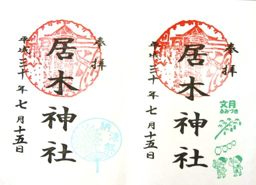 奉拝
居木神社
平成三十年七月十五日
奉拝
居木神社
平成三十年七月十五日
文月
ふみづき